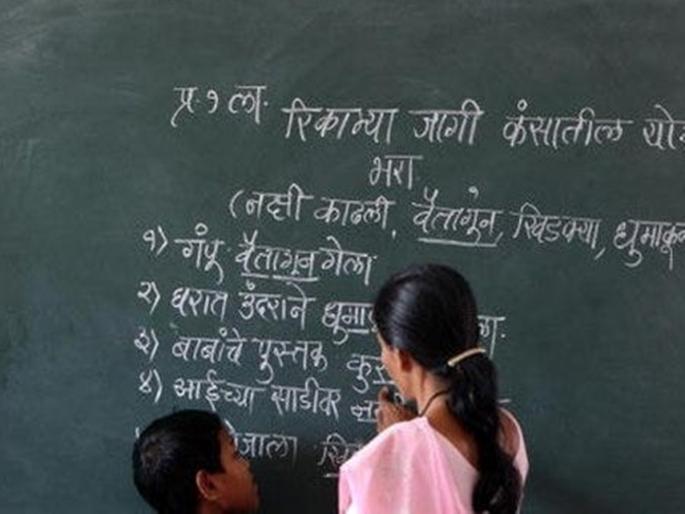 प्र.१ ला. रिकाम्या जागी कंसातील यो
भरा.
(नक्षी काढली, वैतागून, खिडक्या, धुमाकू
१) गंपू वैतागून गेला
२) घरात उंदराने धुमा ला.
३) बाबांचे पुस्तक कु
४) आईच्या साडीवर न
जाला खि